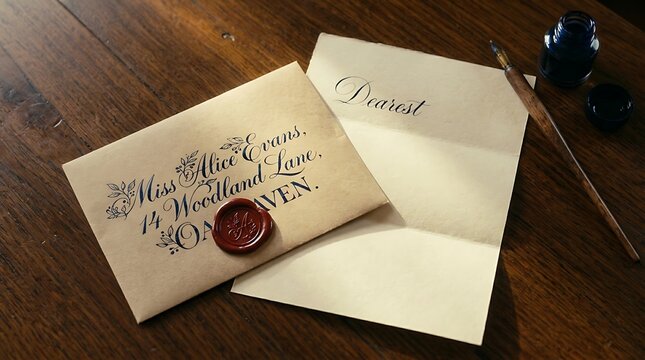 Miss Alice Evans,
14 Woodland Lane,
Dearest